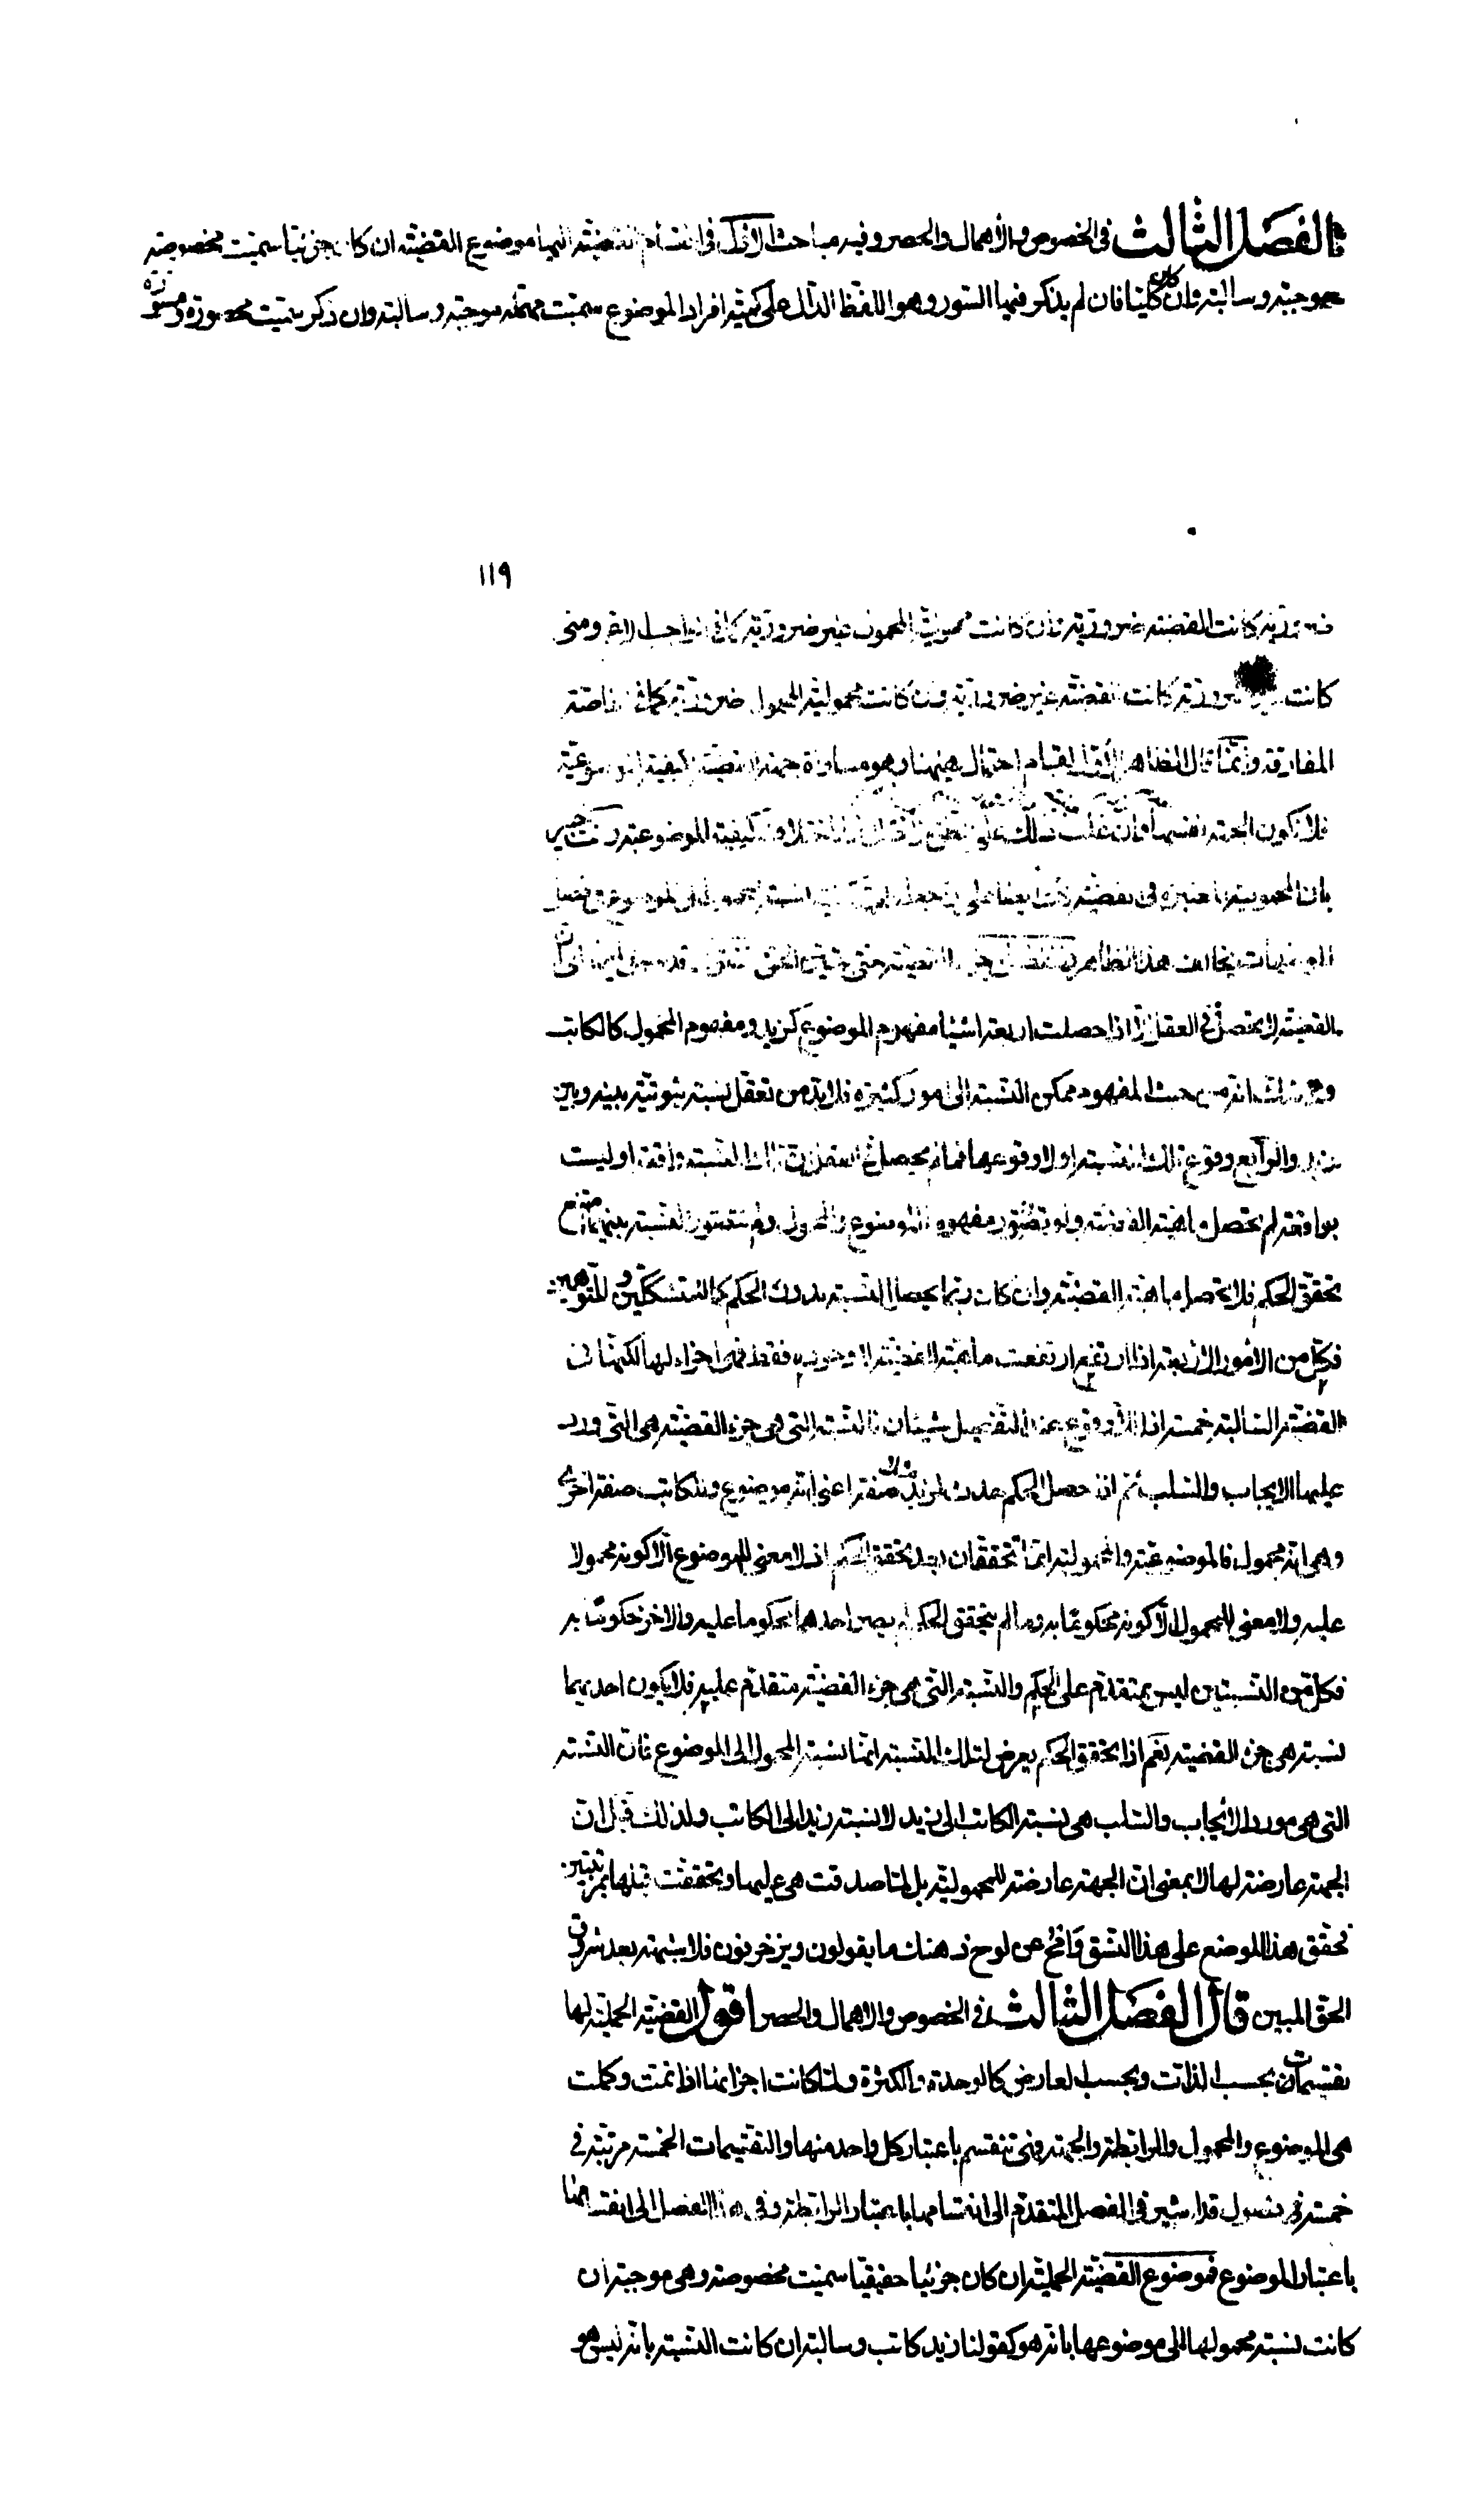 الفصل الثالث في الخصوص والاهمال والحصر وفيه مباحث الاول في انقسام القضية اليها موضوع القضية ان كان جزئيا سميت مخصوصة
موجبة وسالبة وان كان كليا فان لم يذكر فيها السور وهو اللفظ الدال على كمية افراد الموضوع سميت مهملة موجبة وسالبة وان ذكر سميت محصورة ومسورة
١١٩
ضرورية كانت القضية ضرورية وان كانت محمولية المحمول غير ضرورية كما في ومتى
كانت ضرورية كانت القضية غير ضرورية وان كانت محمولية المحمول ضرورية كما في الخاصة
المفارقة وانما قال الظاهر لقيام احتمال هيهنا وهو مساواة جهة القضية لكيفية الموضوعية
فلا تكون الجهة نفسها فان قلت ذلك على كيفية الموضوعية خبير
بان المحمولية المعتبرة في القضية المحمول الى الموضوع
هذا الظاهر القضية حتى يتبين الحق قد سبق ايماء الى ان
القضية لا تحصل في العقل الا اذا حصلت اربعة اشياء مفهوم الموضوع كزيد ومفهوم المحمول كالكاتب
ولا شك انه من حيث المفهوم ممكن النسبة الى امور كثيرة فلا بد من تعقل نسبة ثبوتية بينه وبين
زيد والرابع وقوع تلك النسبة اولا وقوعها فما لم يحصل في العقل ان تلك النسبة واقعة او ليست
بواقعة لم تحصل ماهية القضية ولو تصور مفهوم الموضوع والمحمول ولم تتصور النسبة بينهما امتنع
تحقق الحكم فلا تحصل ماهية القضية وان كان ربما يحصل النسبة بدون الحكم كما للمتشككين والمتوهمين
فكل من الامور الاربعة اذا ارتفع ارتفعت ماهية القضية لا وجودها فقط فهي اجزاء لها لكنها في
القضية السالبة خمسة اذ اللاوقوع عند التفصيل شيئان فالنسبة التي هي جزء القضية هي التي ورد
عليها الايجاب والسلب ثم اذا حصل الحكم حدث لزيد مثلا صفة اعني انه موضوع وللكاتب صفة اخرى
وهي انه محمول فالموضوعية والمحمولية انما تتحققان بعد تحقق الحكم اذ لا معنى للموضوع الا كونه محكوما
عليه ولا معنى للمحمول الا كونه محكوما به وما لم يتحقق الحكم لم يصر احدهما محكوما عليه والاخر محكوما به
فكل من النسبتين ليس بمتقدم على الحكم والنسبة التي هي جزء القضية متقدم عليه فلا يكون احديهما
نسبة هي جزء القضية نعم اذا تحقق الحكم يعرض لتلك النسبة انها نسبة المحمول الى الموضوع فان النسبة
التي هي مورد الايجاب والسلب هي نسبة الكاتب الى زيد لا نسبة زيد الى الكاتب ولذلك قيل ان
الجهة عارضة لها لا بمعنى ان الجهة عارضة للمحمولية بل لما صدقت هي عليها وتحققت قبلها بمرتبتين
تحقق هذا الموضع على هذا النسق وامح عن لوح ذهنك ما يقولون ويزخرفون فلا شبهة بعد شروق
الحق المبين قال الفصل الثالث في الخصوص والاهمال والحصر اقول القضية الحملية لها
تقسيمات بحسب الذات وبحسب العارض كالوحدة والكثرة ولما كانت اجزائها اذا تمت وكملت
هي الموضوع والمحمول والرابطة والجهة فهي تنقسم باعتبار كل واحد منها والتقسيمات الخمسة مرتبة في
خمسة فصول قد اشير في الفصل المتقدم الى انقسامها باعتبار الرابطة وفي هذا الفصل الى انقسامها
باعتبار الموضوع فموضوع القضية الحملية ان كان جزئيا حقيقيا سميت مخصوصة وهي موجبة ان
كانت نسبة محمولها الى موضوعها بانه هو كقولنا زيد كاتب وسالبة ان كانت النسبة بانه ليس هو